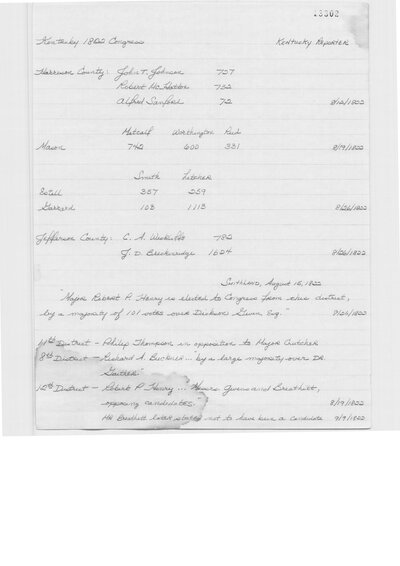 18302
Kentucky 1822 Congress Kentucky Reporter
Harrison County: John T. Johnson 757
Robert McHatton 752
Alfred Sanford 72 8/12/1822
Metcalf Worthington Reid
Mason 742 600 331 8/19/1822
Smith Letcher
Estill 357 259
Garrard 103 1113 8/26/1822
Jefferson County: C. A. Wickliffe 782
J. D. Breckinridge 1624 8/26/1822
Smithland, August 15, 1822
"Major Robert P. Henry is elected to Congress from this district,
by a majority of 101 votes over Dickson Given Esq." 8/26/1822
11th District - Philip Thompson in opposition to Major Crutcher
8th District - Richard A. Buckner... by a large majority over Dr.
Gaither"
12th District - Robert P. Henry... Messrs. Givens and Breathitt,
opposing candidates. 8/19/1822
Mr Breathitt later stated not to have been a candidate 9/9/1822